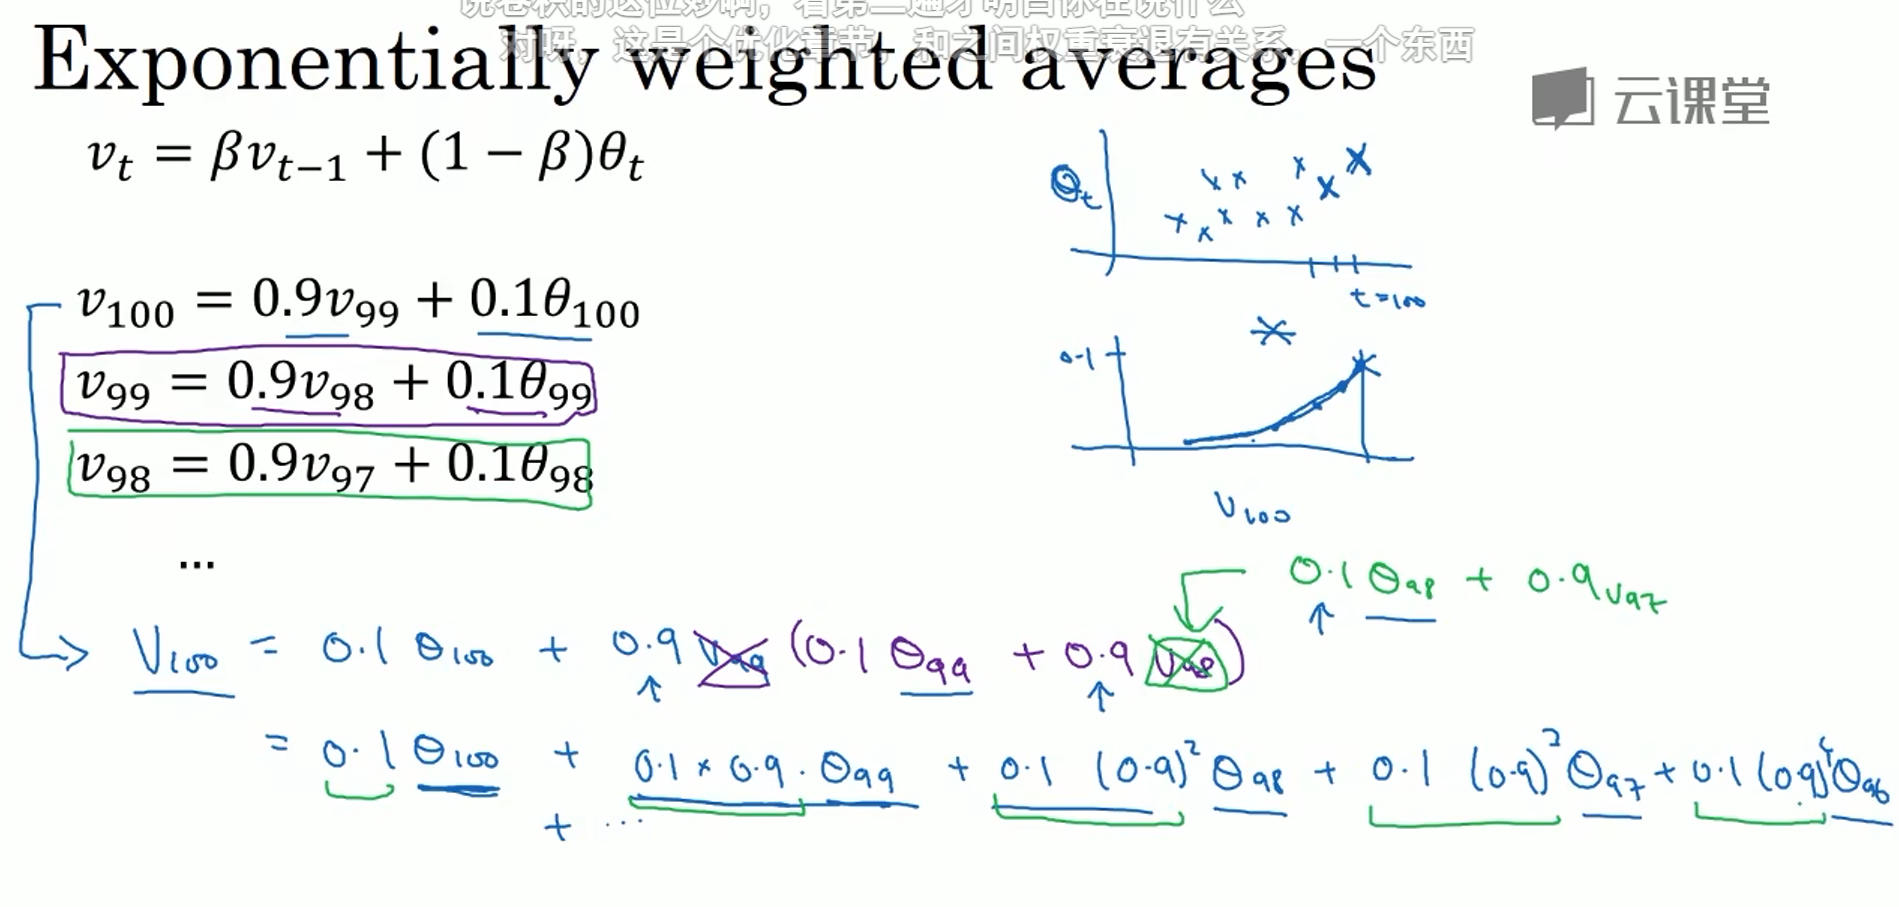 对呀，这是个优化章节，和之间权重衰退有关系，一个东西
Exponentially weighted averages
云课堂
v_t = βv_{t−1} + (1 − β)θ_t
θ_t
t=100
v_100 = 0.9v_99 + 0.1θ_100
v_99 = 0.9v_98 + 0.1θ_99
v_98 = 0.9v_97 + 0.1θ_98
...
0.1
V_100
0.1 θ_98 + 0.9 v_97
V_100 = 0.1 θ_100 + 0.9 v_99 (0.1 θ_99 + 0.9 v_98)
= 0.1 θ_100 + 0.1 × 0.9 · θ_99 + 0.1 (0.9)^2 θ_98 + 0.1 (0.9)^3 θ_97 + 0.1 (0.9)^4 θ_96
+ ...